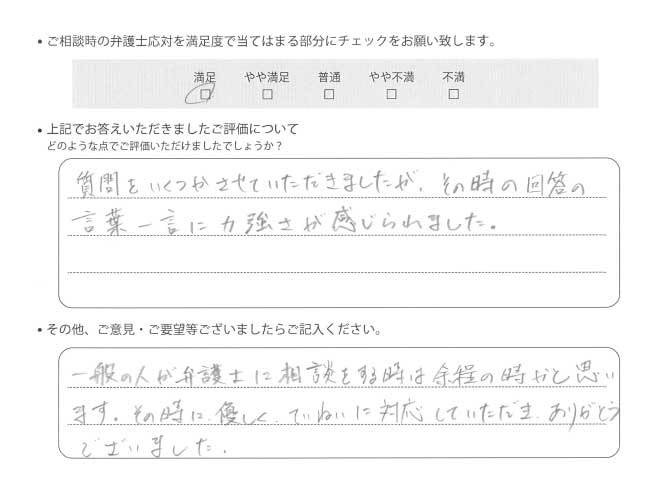 • ご相談時の弁護士応対を満足度で当てはまる部分にチェックをお願い致します。
満足 やや満足 普通 やや不満 不満
□ □ □ □ □
• 上記でお答えいただきましたご評価について
どのような点でご評価いただけましたでしょうか？
質問をいくつかさせていただきましたが、その時の回答の
言葉一言に力強さが感じられました。
• その他、ご意見・ご要望等ございましたらご記入ください。
一般の人が弁護士に相談をする時は余程の時かと思い
ます。その時に、優しく、ていねいに対応していただき、ありがとう
ございました。